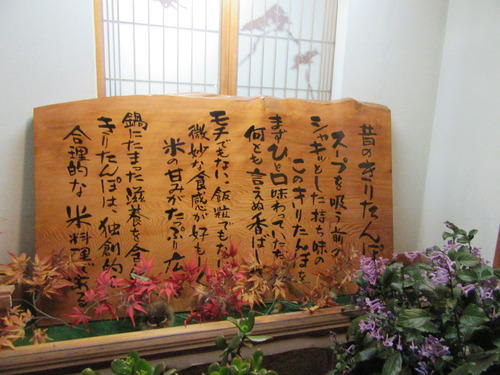 昔のきりたんぽ
スープを吸う前の
シャキッとした持ち味の
このきりたんぽを
まずひと口味わっていただ
何とも言えぬ香ばし
モチでもない、飯粒でもな
微妙な食感が好もし
米の甘みがたっぷり広
鍋にたまった滋養を食
きりたんぽは、独創的
合理的な米料理である